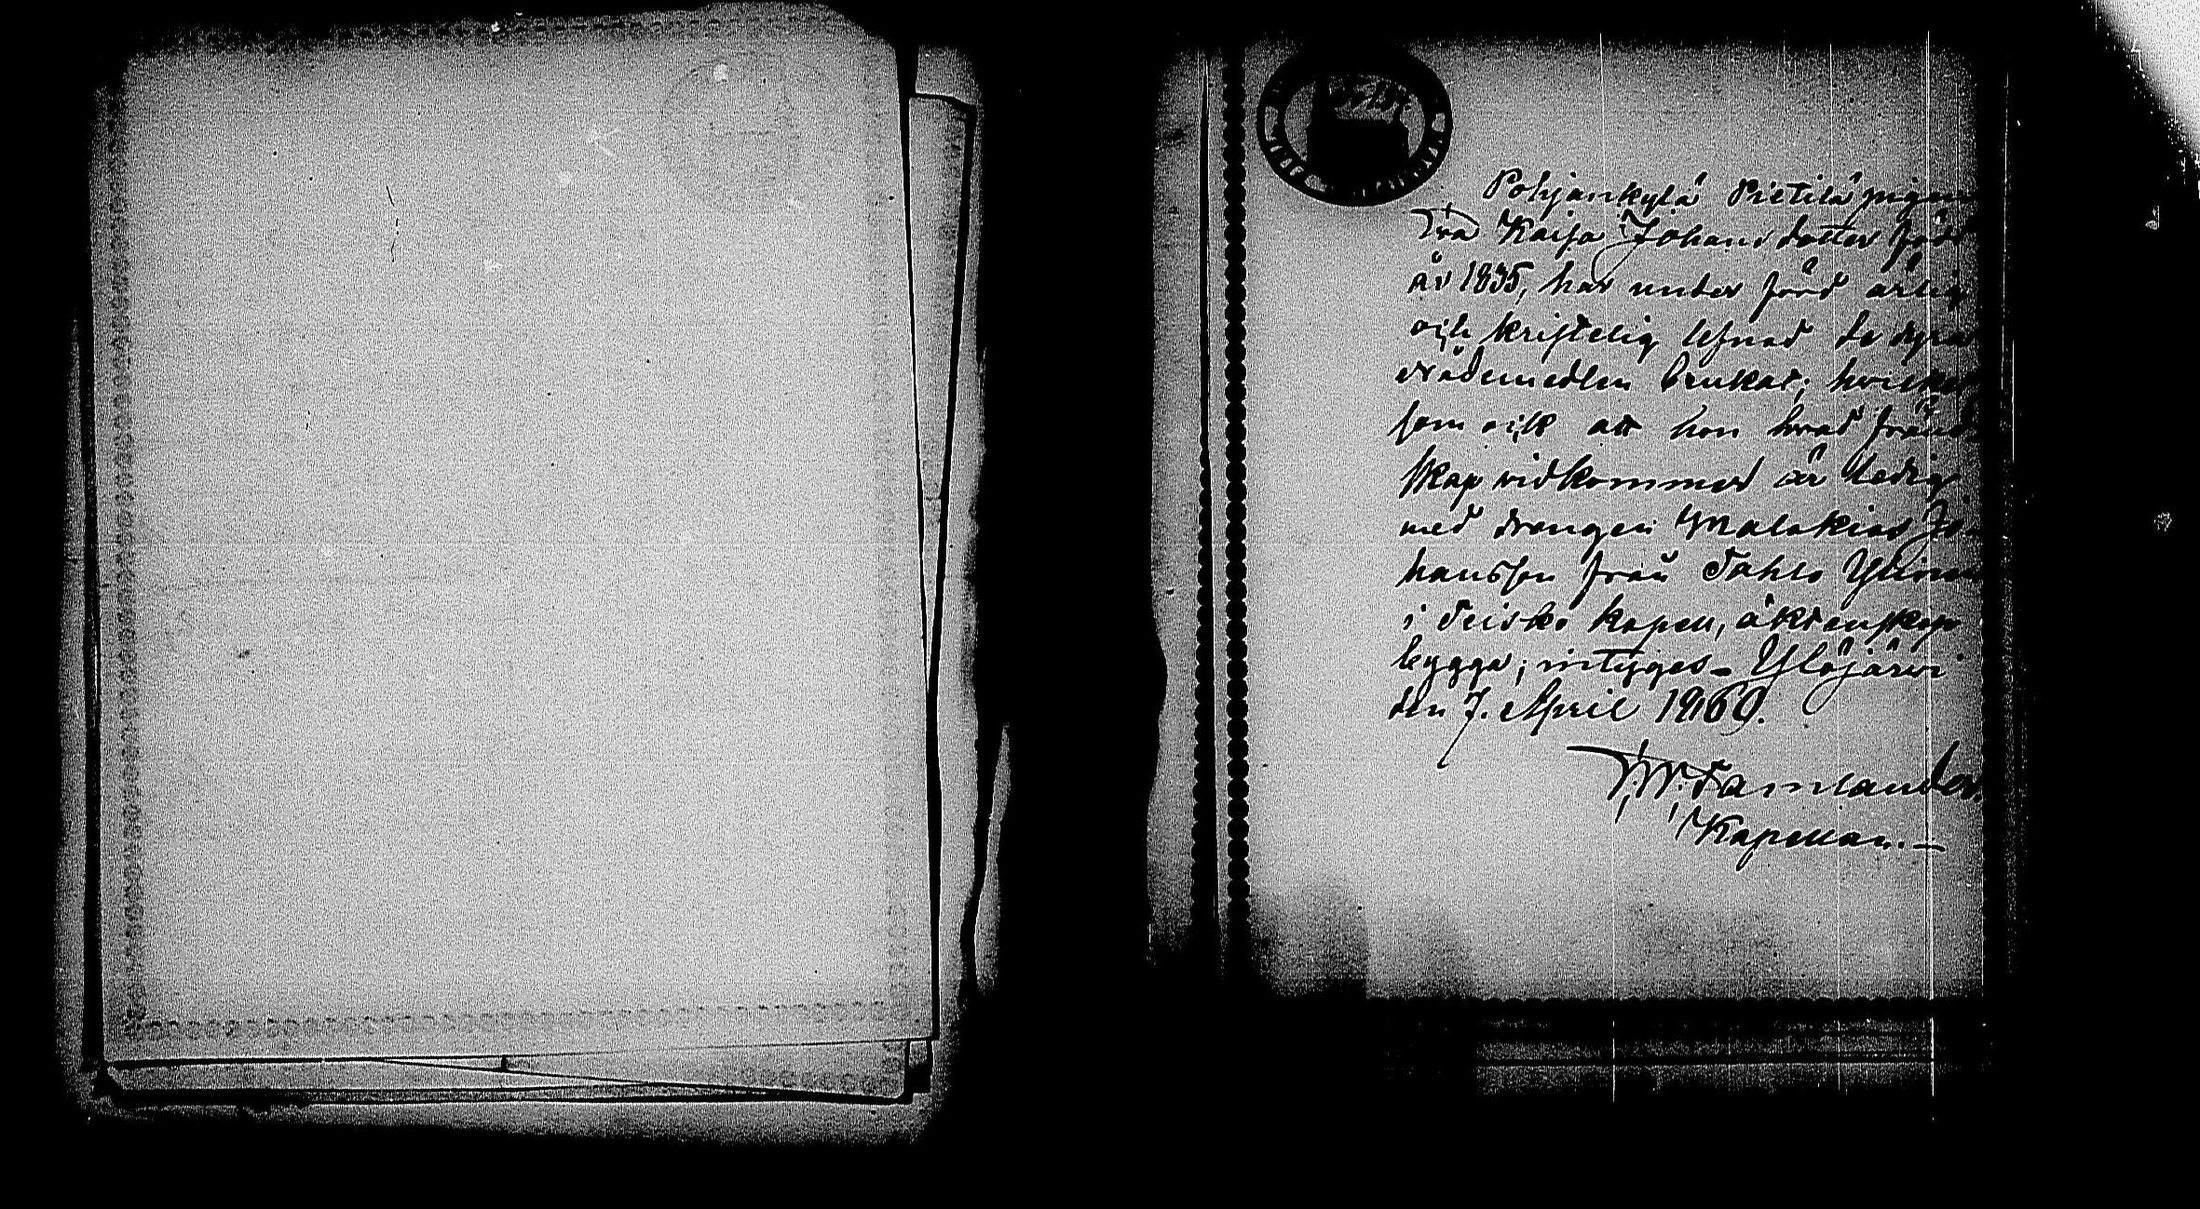 Pohjankylä Pietilä pigan
Eva Kaisa Johansdotter född
år 1835, har under förd ärlig
och kristelig lefnad de dyra
nådemedlen brukat; hvilken
som ock att hon hvad fränd-
skap vidkommer är ledig
med drengen Malakias Jo-
hansson från Tahlo Ylinen
i Teisko kapell, äktenskap
bygga; intyges. Ylöjärvi
den 7. April 1860.
W. Tamlander.
Kapellan.